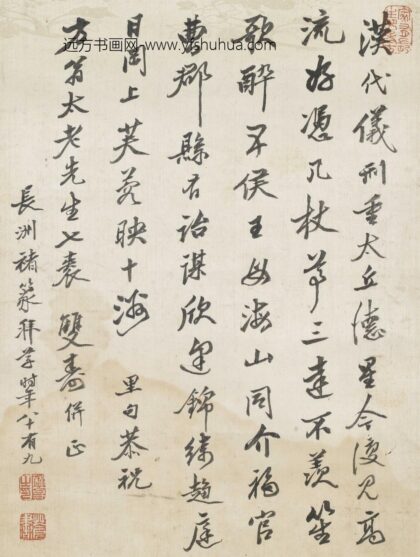 远方书画网 www.yfshuhua.com
漢代儀刑重太丘德星今復見高
流好憑几杖尊三達不羨笙
歌醉五侯王母海山同介福官
曹郡縣有詒謀欣逢錦綵趨庭
日閬上芙蓉映十洲 里句恭祝
翁太老先生七袠雙壽併正
長洲褚篆拜草時年八十有九